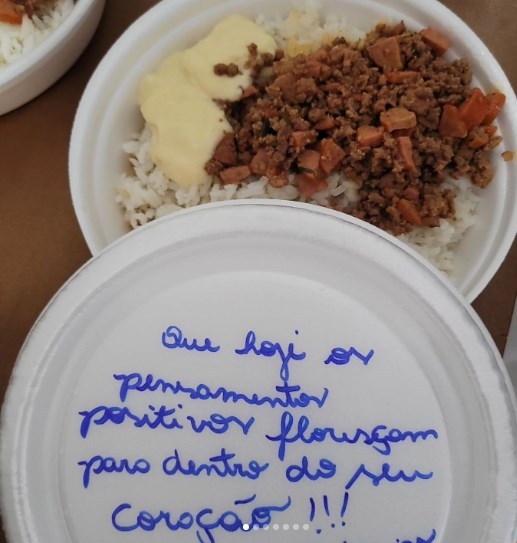 Que hoje os
pensamentos
positivos floresçam
para dentro do seu
coração !!!